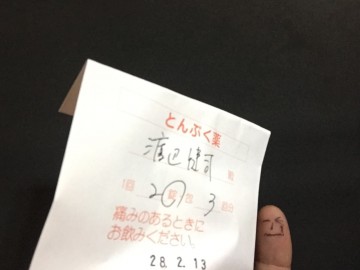 とんぷく薬
渡辺 殿
1回 2 錠 包 3 回分
痛みのあるときに
お飲みください。
28.2.13